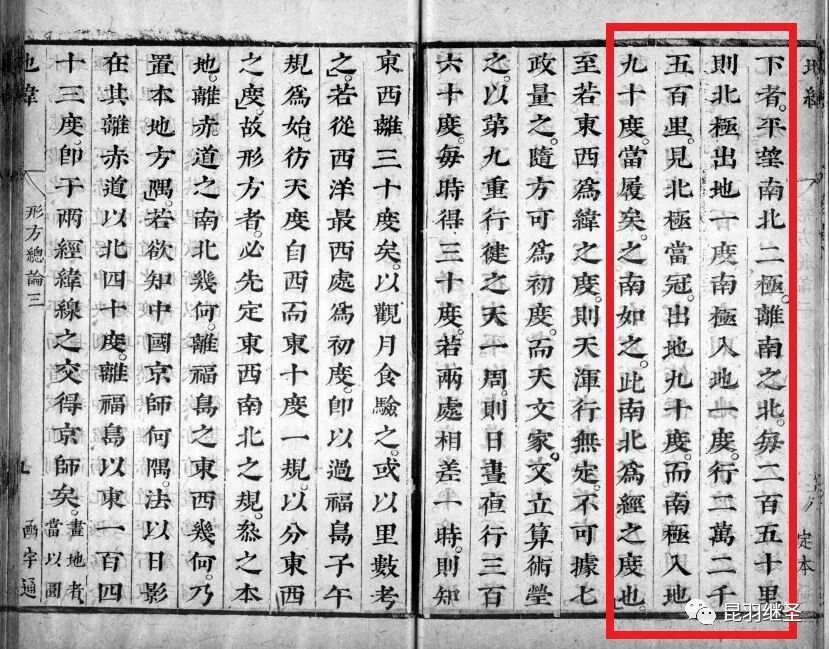 地緯
定本
下者。平望南北二極。離南之北。每二百五十里
則北極出地一度南極入地一度。行二萬二千
五百里。見北極當冠。出地九十度。而南極入地
九十度。當履矣。之南如之。此南北爲經之度也。
至若東西爲緯之度。則天渾行無定。不可據七
政量之。隨方可爲初度。而天文家。又立算術瑩
之。以第九重行健之天一周。則日晝夜行三百
六十度。每時得三十度。若兩處相差一時。則知
東西離三十度矣。以觀月食驗之。或以里數考
之。若從西洋最西處爲初度。卽以過福島子午
規爲始。彷天度自西而東十度一規。以分東西
之度。故形方者。必先定東西南北之規。叅之本
地。離赤道之南北幾何。離福島之東西幾何。乃
置本地方隅。若欲知中國京師何隅。法以日影
在其離赤道以北四十度。離福島以東一百四
十三度。卽于兩經緯線之交得京師矣。畫地者
當以圓
地緯
形方總論三
九
函宇通
昆羽继圣